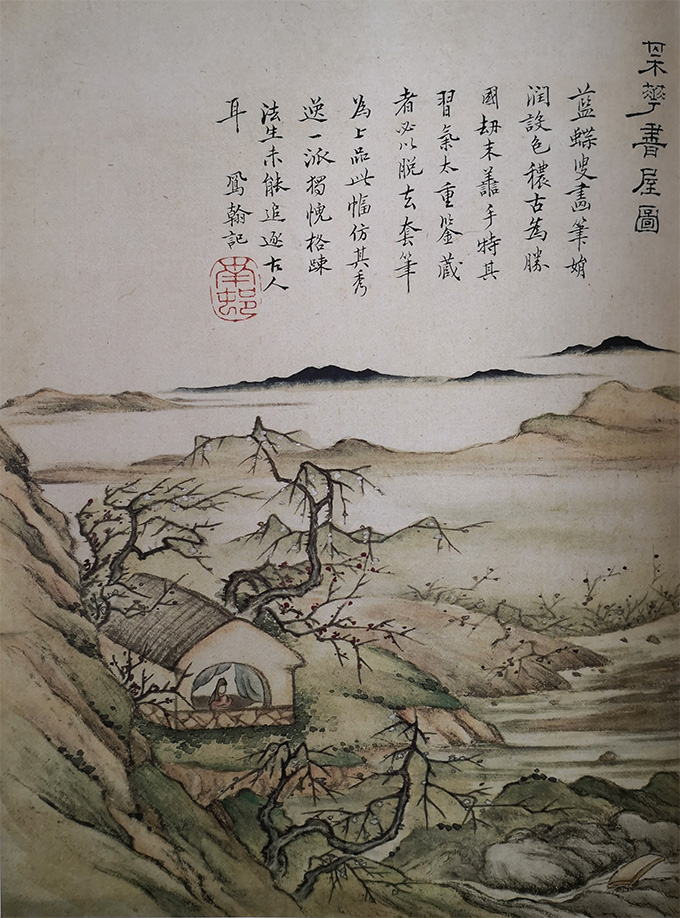 某華書屋圖
藍蝶叟畫筆娟
潤設色穠古為勝
國劫末手特其
習氣太重鑒藏
者必以脫去套筆
為上品此幅仿其秀
逸一派獨愧格疎
法生未能追逐古人
耳 鳳翰記
南邨